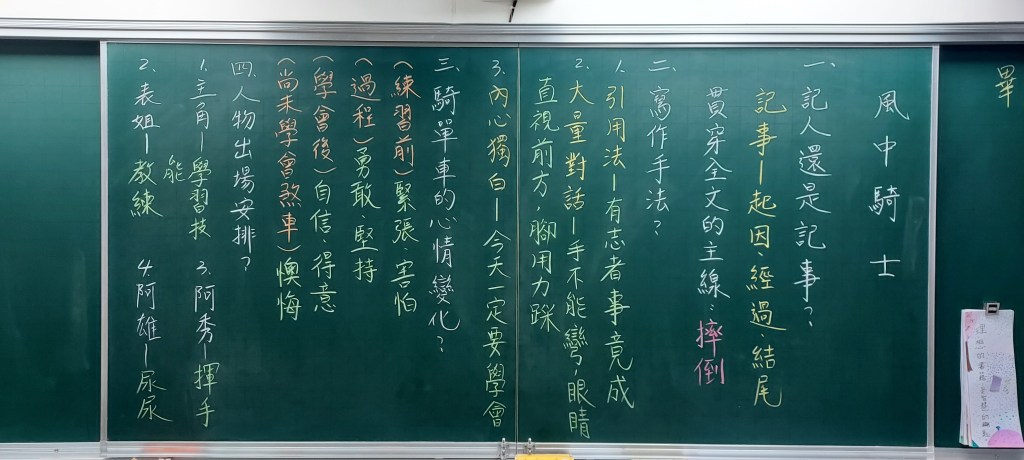 風中騎士
一、記人還是記事？
記事－起因、經過、結尾
貫穿全文的主線：摔倒
二、寫作手法？
1. 引用法－有志者事竟成
2. 大量對話－手不能彎，眼睛
直視前方，腳用力踩
3. 內心獨白－今天一定要學會
三、騎單車的心情變化？
(練習前)緊張、害怕
(過程)勇敢、堅持
(學會後)自信、得意
(尚未學會煞車)懊悔
四、人物出場安排？
1. 主角－學習技能
3. 阿秀－揮手
2. 表姐－教練
4. 阿雄－尿尿
畢